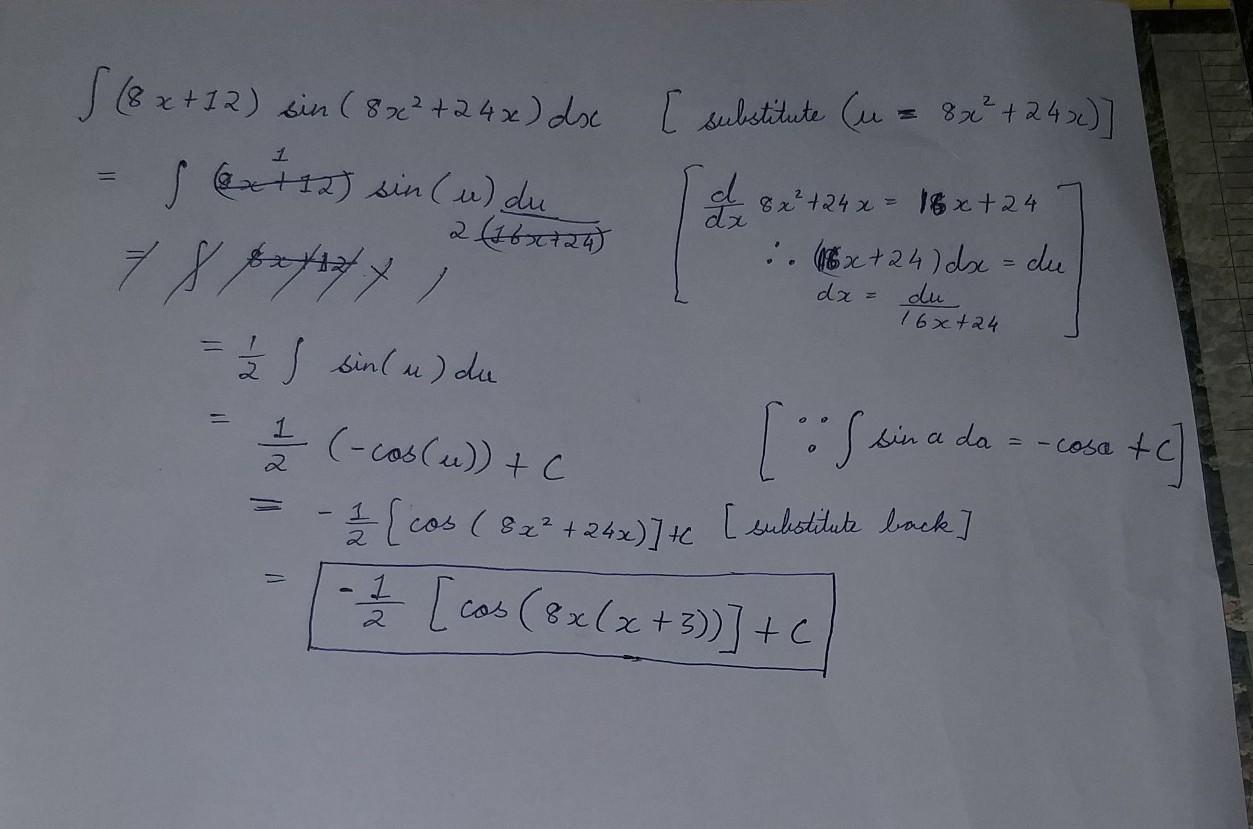 ∫ (8x+12) sin(8x²+24x) dx [substitute (u = 8x²+24x)]
= ∫ (8x+12) 1 sin(u) du / 2 (16x+24)
[d/dx 8x²+24x = 16x+24
∴ (16x+24) dx = du
dx = du / 16x+24]
= ∫ 8x+12
= 1/2 ∫ sin(u) du
= 1/2 (-cos(u)) + C [∵ ∫ sin a da = -cosa + C]
= -1/2 [cos(8x²+24x)]+C [substitute back]
= -1/2 [cos(8x(x+3))] + C